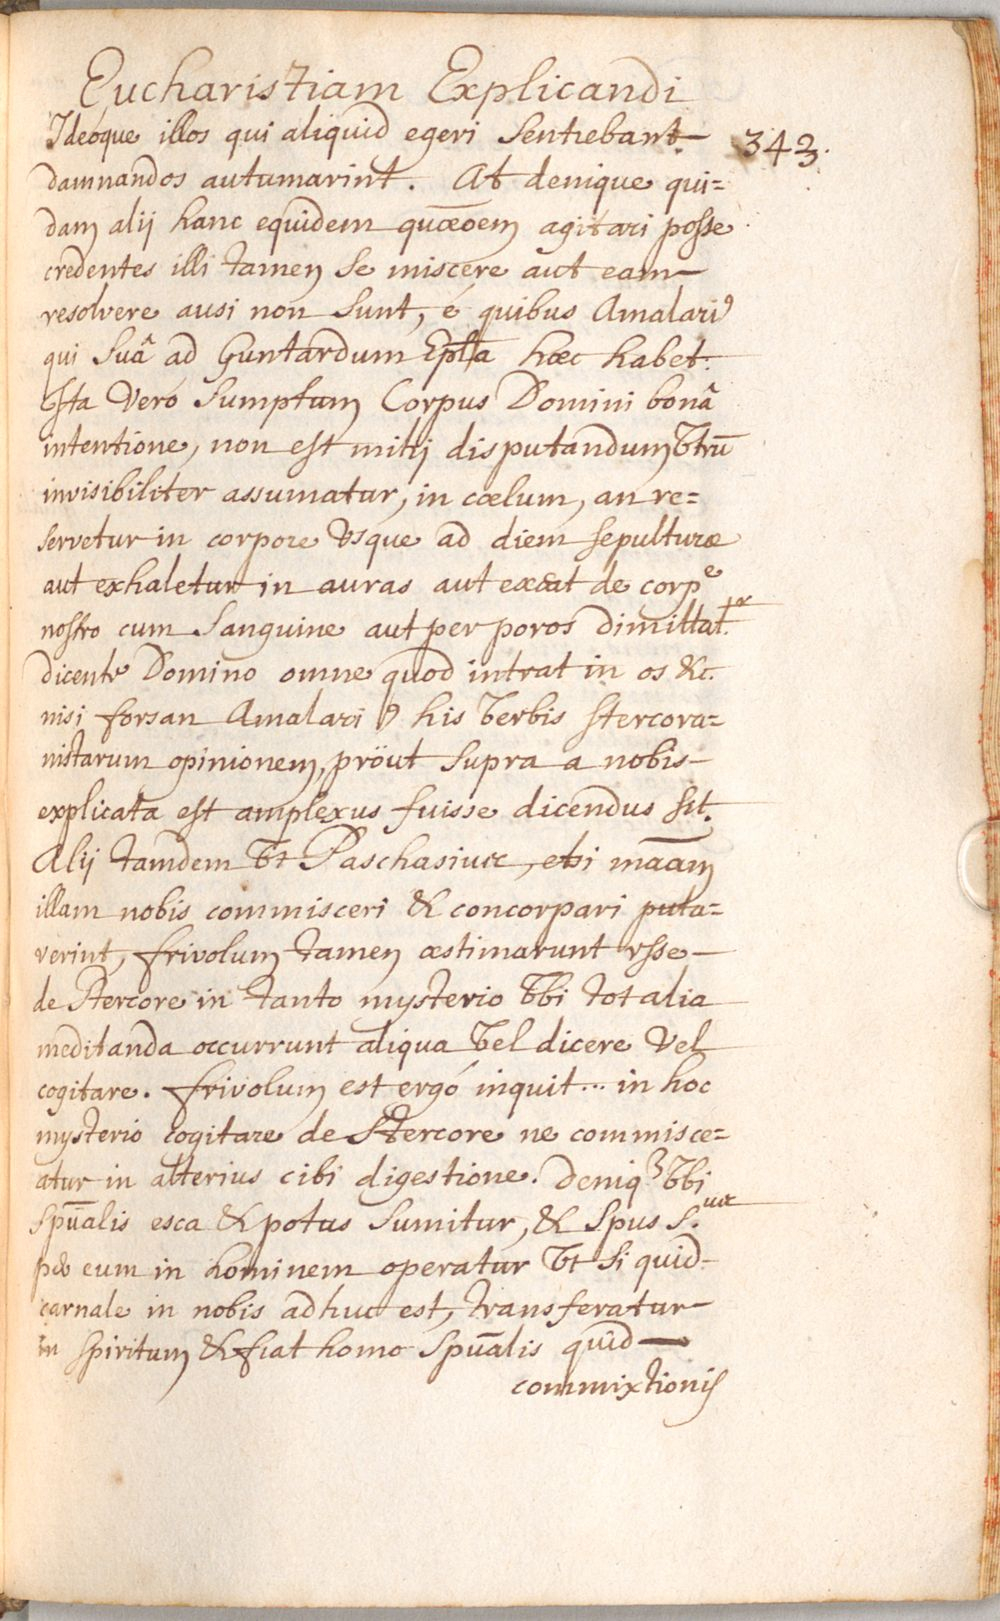 Eucharistiam Explicandi
343.
Ideóque illos qui aliquid egeri Sentiebant-
damnandos autumarint. At denique qui=
dam alij hanc equidem quæōem agitari posse
credentes illi tamen se miscere aut eam-
resolvere ausi non sunt, é quibus Amalari⁹
qui Suâ ad Guntardum Epl̄a hæc habet:
Ista Veró Sumptum Corpus Domini bonâ
intentione, non est mihj disputandum Vtrū
invisibiliter assumatur, in cœlum, an re=
servetur in corpore Vsque ad diem sepulturæ
aut exhaletur in auras aut exeat de corpᵉ
nostro cum Sanguine aut per poros dimittatʳ.
dicente Domino omne quod intrat in os &c.
nisi forsan Amalari⁹ his Verbis stercora=
nistarum opinionem, pröut supra a nobis-
explicata est amplexus fuisse dicendus sit.
Alij tamdem Vt Paschasius, etsi māam
illam nobis commisceri & concorpari puta=
verint, frivolum tamen æstimarunt esse-
de stercore in tanto mysterio Vbi tot alia
meditanda occurrunt aliqua Vel dicere Vel
cogitare. frivolum est ergó inquit... in hoc
mysterio cogitare de stercore ne commisce=
atur in alterius cibi digestione. deniqꝫ Vbi
Spūalis esca & potus sumitur, & Spus S.
eum in hominem operatur Vt si quid-
carnale in nobis adhuc est, transferatur-
in spiritum & fiat homo Spūalis quid-
commixtionis